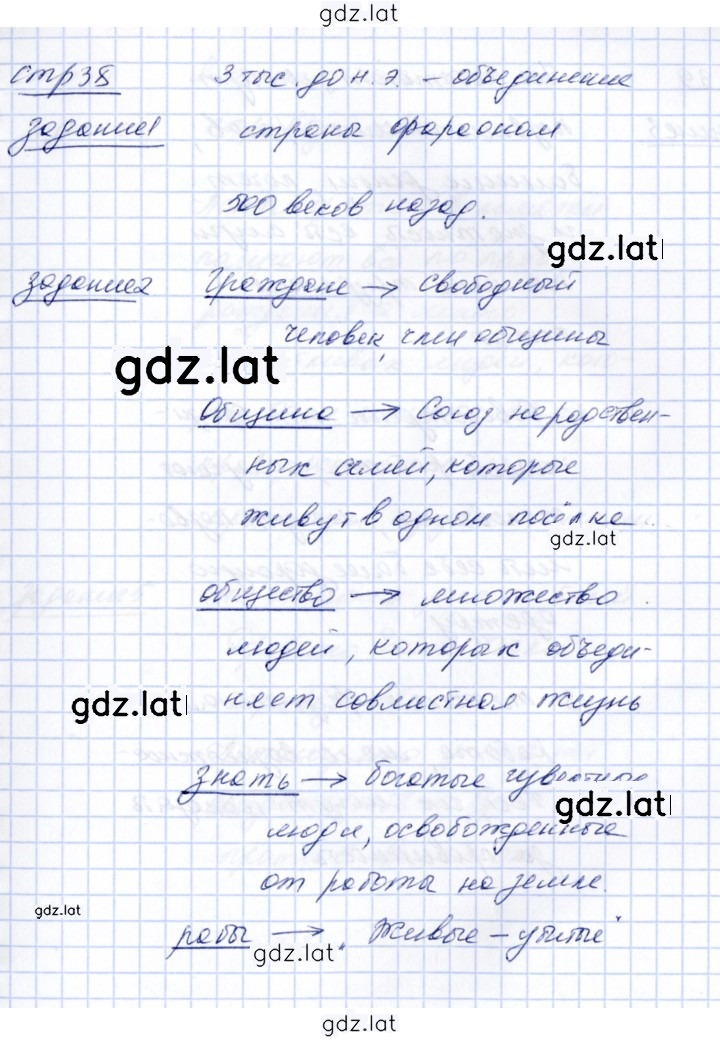 gdz.lat
стр38 3 тыс. до н. э. – объединение
задание1 страны фараоном
500 веков назад.
gdz.lat
задание2 Граждане → Свободный
человек, член общины
gdz.lat
Община → Союз неродствен-
ных семей, которые
живут в одном посёлке
gdz.lat
общество → множество
людей, которых объеди-
няет совместная жизнь
gdz.lat
знать → богатые
gdz.lat
люди, освобожденные
от работы на земле.
gdz.lat
рабы → "Живые – убитые"
gdz.lat
gdz.lat